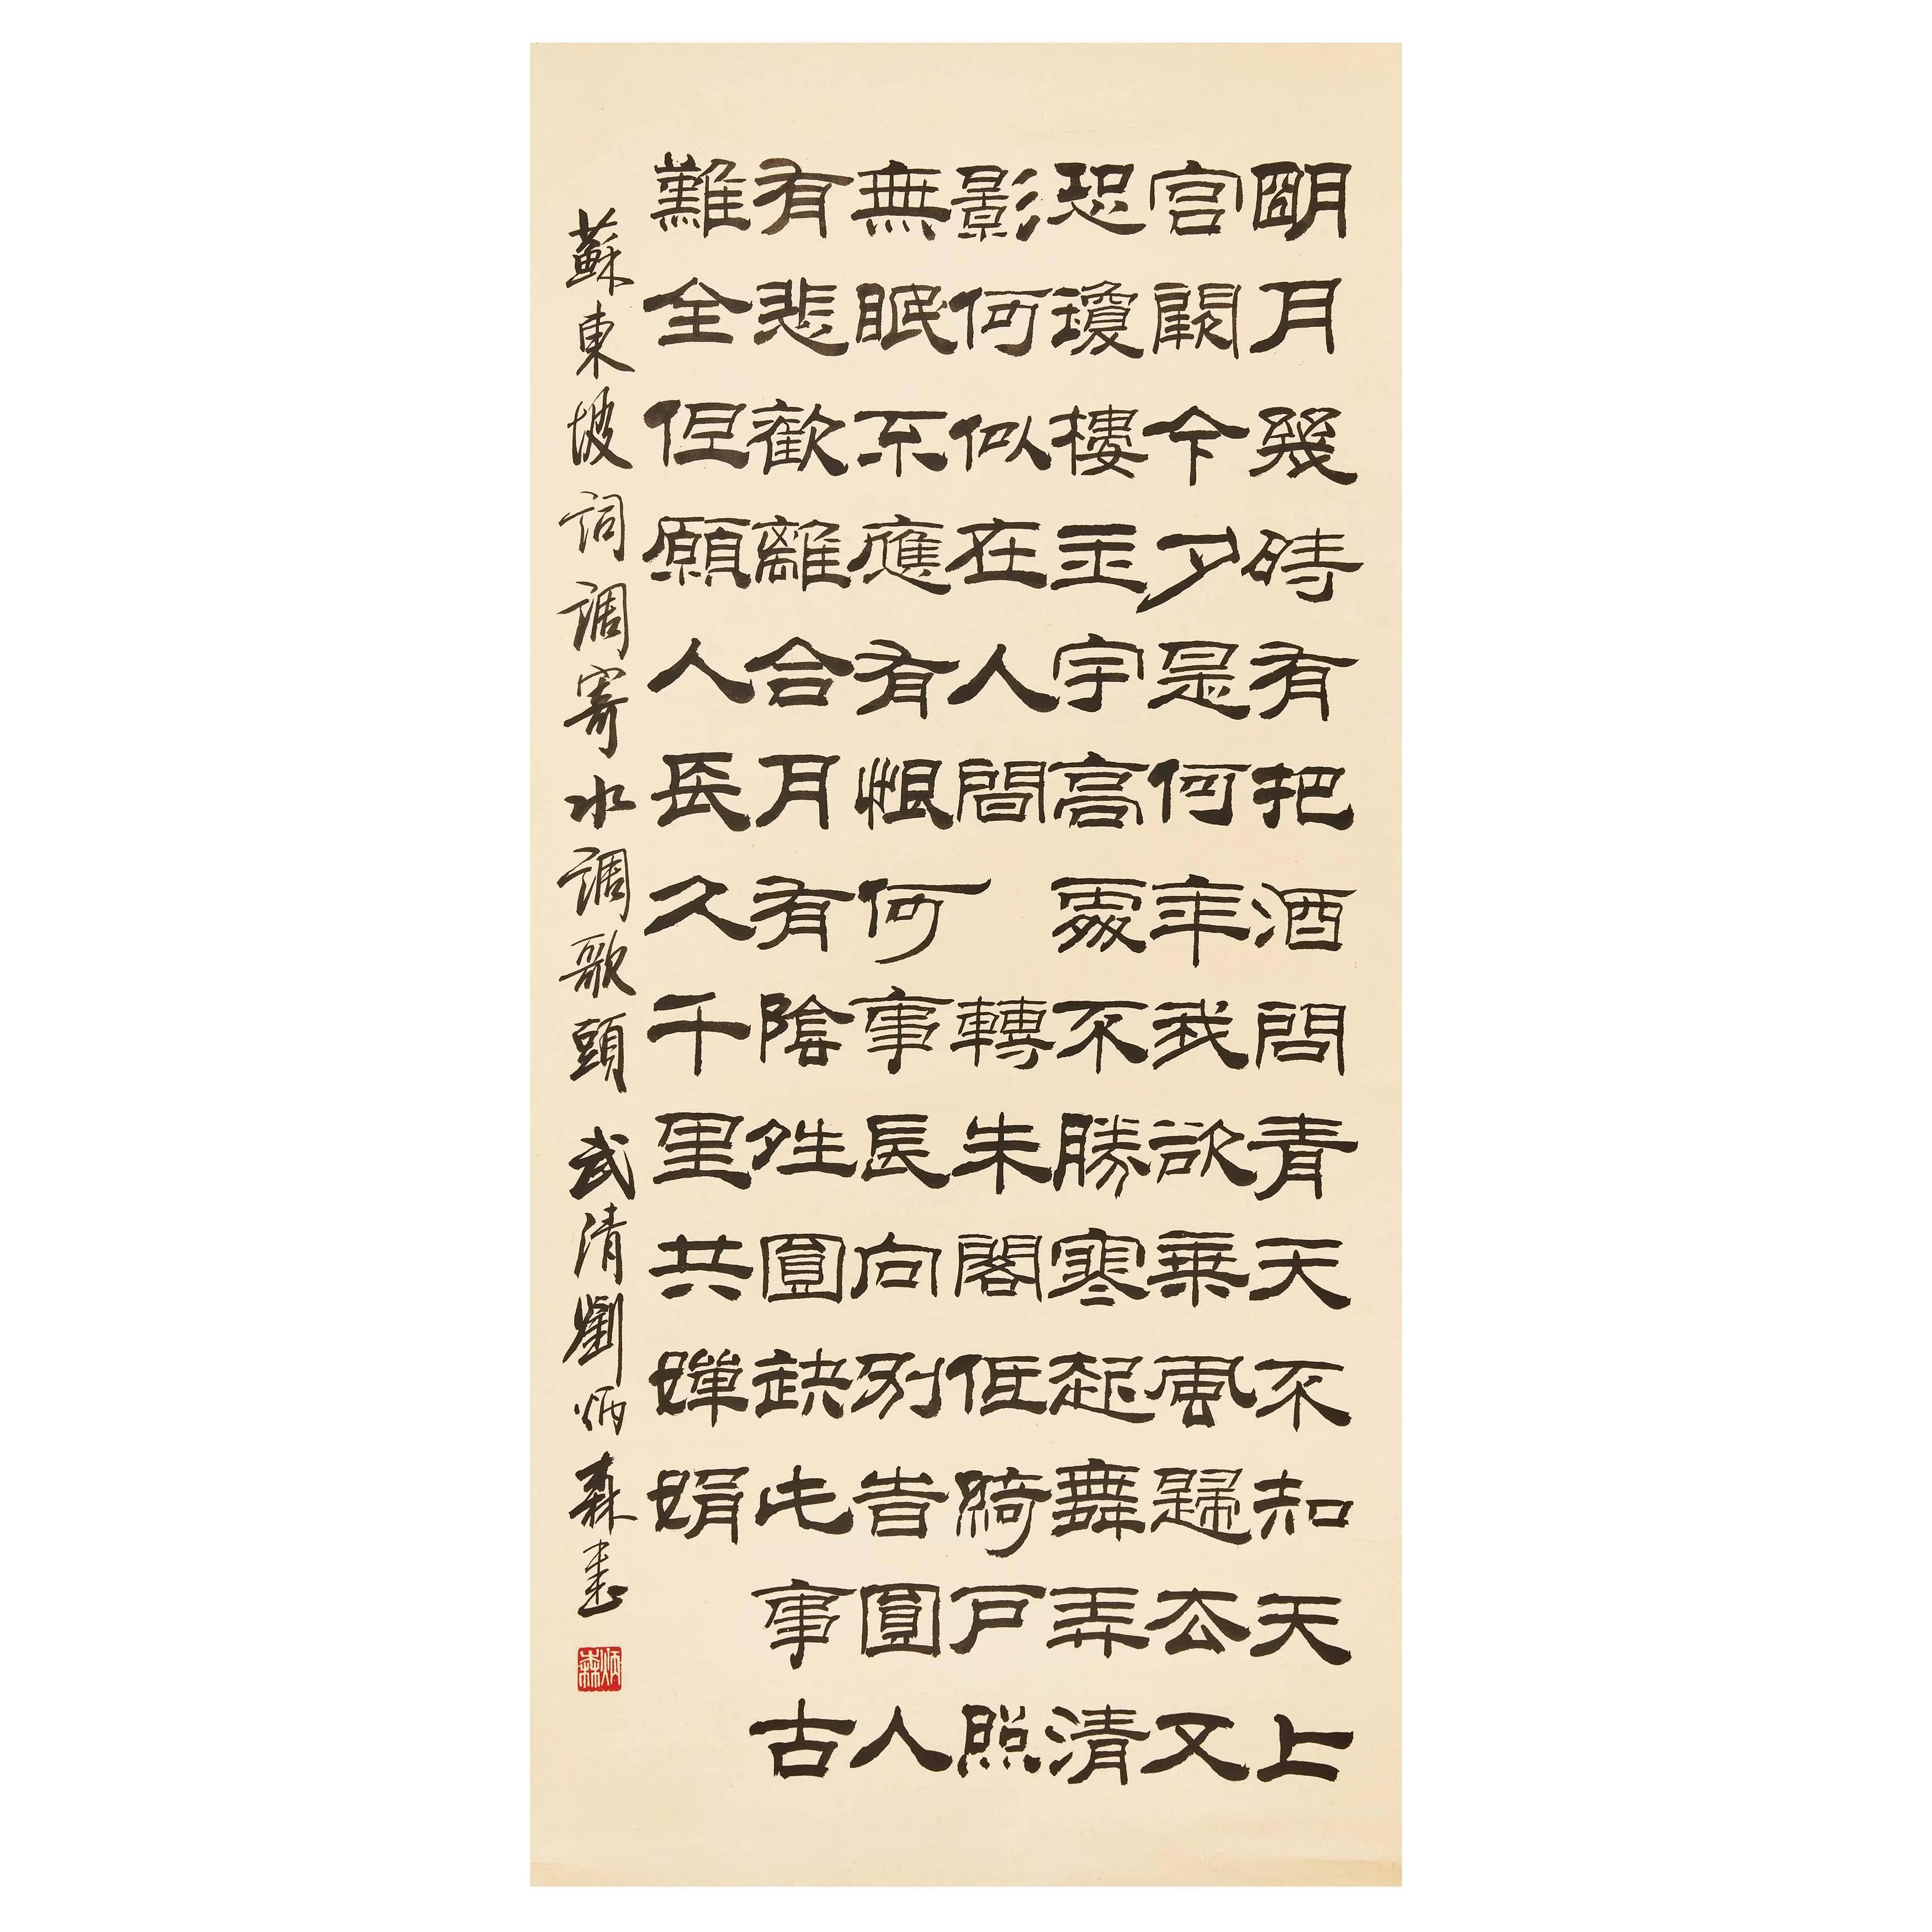 明月幾時有把酒問青天不知天上
宮闕今夕是何年我欲乘風歸去又
恐瓊樓玉宇高處不勝寒起舞弄清
影何似在人間 轉朱閣低綺戶照
無眠不應有恨何事長向別時圓人
有悲歡離合月有陰晴圓缺此事古
難全但願人長久千里共嬋娟
蘇東坡詞調寄水調歌頭 武清劉炳森書
炳森